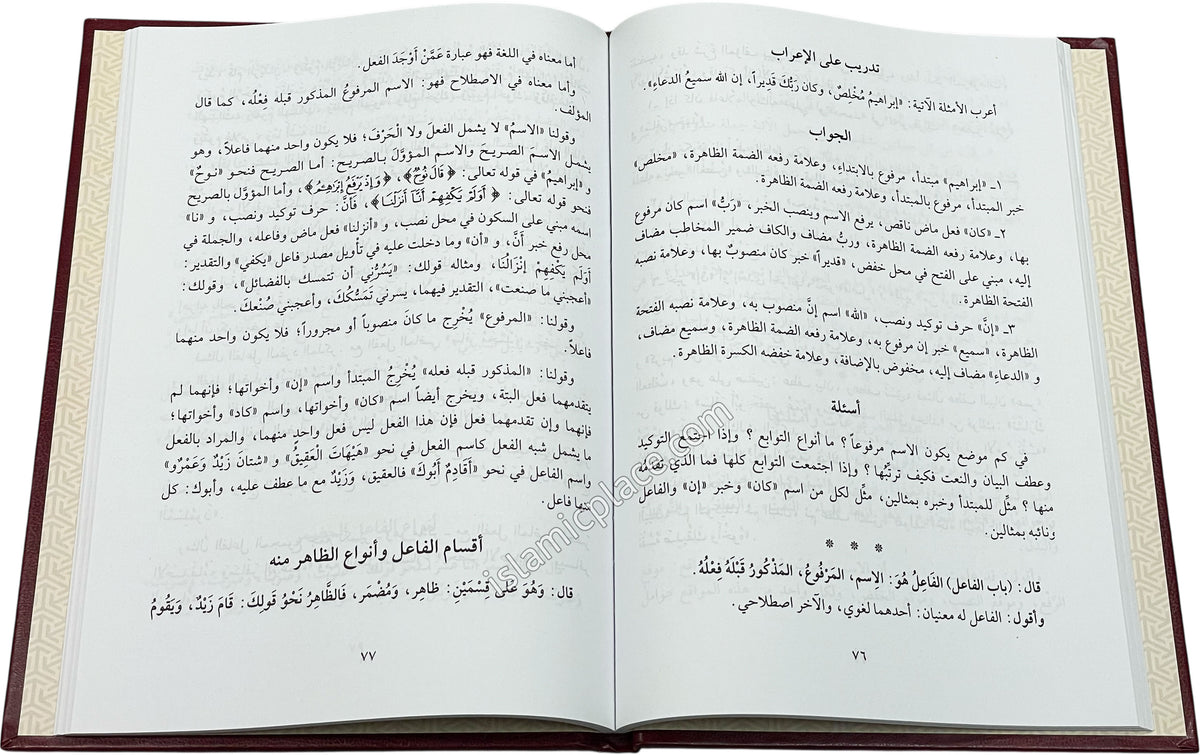 تدريب على الإعراب
أعرب الأمثلة الآتية: «إبراهيمُ مُخْلِصٌ، وكان رَبُّكَ قَدِيراً، إن الله سميعُ الدعاءِ».
الجواب
١ـ «إبراهيم» مبتدأ، مرفوع بالابتداءِ، وعلامة رفعه الضمة الظاهرة، «مخلص»
خبر المبتدأ، مرفوع بالمبتدأ، وعلامة رفعه الضمة الظاهرة.
٢ـ «كان» فعل ماض ناقص، يرفع الاسم وينصب الخبر، «رَبُّ» اسم كان مرفوع
بها، وعلامة رفعه الضمة الظاهرة، وربُّ مضاف والكاف ضمير المخاطب مضاف
إليه، مبني على الفتح في محل خفض، «قديراً» خبر كان منصوبٌ بها، وعلامة نصبه
الفتحة الظاهرة.
٣ـ «إنَّ» حرف توكيد ونصب، «الله» اسم إنَّ منصوب به، وعلامة نصبه الفتحة
الظاهرة، «سميع» خبر إن مرفوع به، وعلامة رفعه الضمة الظاهرة، وسميع مضاف،
و «الدعاءِ» مضاف إليه، مخفوض بالإضافة، وعلامة خفضه الكسرة الظاهرة.
أسئلة
في كم موضع يكون الاسم مرفوعاً؟ ما أنواع التوابع؟ وإذا اجتمع التوكيد
وعطف البيان والنعت فكيف ترتِّبُها؟ وإذا اجتمعت التوابع كلها فما الذي تقدِّمُه
منها؟ مثِّل للمبتدأ وخبره بمثالين، مثِّل لكل من اسم «كان» وخبر «إن» والفاعل
ونائبه بمثالين.
* * *
قال: (باب الفاعل) الفَاعِلُ هُوَ: الاسم، المَرْفُوعُ، المَذْكُورُ قَبْلَهُ فِعْلُهُ.
وأقول: الفاعل له معنيان: أحدهما لغوي، والآخر اصطلاحي.
٧٦
أما معناه في اللغة فهو عبارة عَمَّنْ أَوْجَدَ الفعل.
وأما معناه في الاصطلاح فهو: الاسم المرفوعُ المذكور قبله فعْلُه، كما قال
المؤلف.
وقولنا «الاسمُ» لا يشمل الفعلَ ولا الْحَرْفَ؛ فلا يكون واحد منهما فاعلاً، وهو
يشمل الاسمَ الصريحَ والاسم المؤوَّلَ بالصريح: أما الصريح فنحو «نوحٌ»
و «إبراهيمُ» في قوله تعالى: ﴿قَالَ نُوحٌ﴾، ﴿وَإِذْ يَرْفَعُ إِبْرَاهِيمُ﴾، وأما المؤوَّل بالصريح
فنحو قوله تعالى: ﴿أَوَلَمْ يَكْفِهِمْ أَنَّا أَنزَلْنَا﴾، فَأَنَّ: حرف توكيد ونصب، و «نا»
اسمه مبني على السكون في محل نصب، و «أنزلنا» فعل ماض وفاعله، والجملة في
محل رفع خبر أَنَّ، و «أن» وما دخلت عليه في تأويل مصدر فاعل «يكفي» والتقدير:
أَوَلَم يَكْفِهِمْ إِنْزَالُنَا، ومثاله قولك: «يَسُرُّني أن تتمسك بالفضائل»، وقولك:
«أعجبني ما صنعت»، التقدير فيهما، يسرني تَمَسُّكُكَ، وأعجبني صُنْعكَ.
وقولنا: «المرفوع» يُخْرِج ما كانَ منصوباً أو مجروراً؛ فلا يكون واحد منهما
فاعلاً.
وقولنا: «المذكور قبله فعله» يُخْرِجُ المبتدأ واسم «إن» وأخواتها؛ فإنهما لم
يتقدمهما فعل البتة، ويخرج أيضاً اسم «كان» وأخواتها، واسم «كاد» وأخواتها؛
فإنهما وإن تقدمهما فعل فإن هذا الفعل ليس فعل واحد منهما، والمراد بالفعل
ما يشمل شبه الفعل كاسم الفعل في نحو «هَيْهَاتَ الْعَقِيقُ» و «شتانَ زَيْدٌ وَعَمْرٌو»
واسم الفاعل في نحو «أَقَادِمٌ أَبُوكَ» فالعقيق، وَزَيْدٌ مع ما عطف عليه، وأبوك: كل
منها فاعل.
أقسام الفاعل وأنواع الظاهر منه
قال: وَهُوَ عَلَى قِسْمَيْنِ: ظاهِر، وَمُضْمَر، فَالظَّاهِرُ نَحْوُ قَولِكَ: قَامَ زَيْدٌ، وَيَقُومُ
٧٧
islamicplace.com